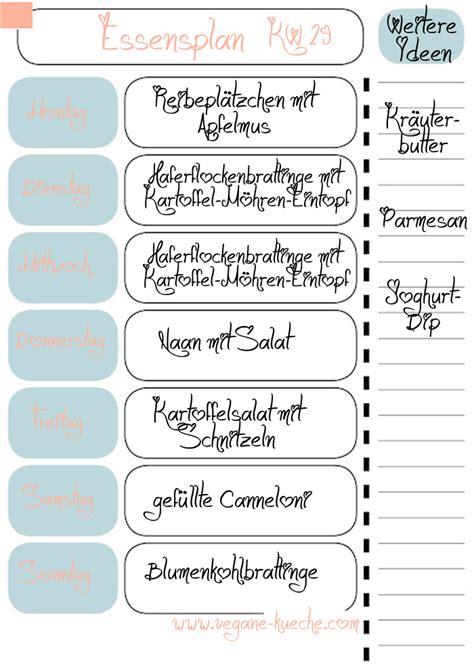 Essensplan KW 29
Weitere
Ideen
Montag
Reibeplätzchen mit
Apfelmus
Dienstag
Haferflockenbratlinge mit
Kartoffel-Möhren-Eintopf
Mittwoch
Haferflockenbratlinge mit
Kartoffel-Möhren-Eintopf
Donnerstag
Naan mit Salat
Freitag
Kartoffelsalat mit
Schnitzeln
Samstag
gefüllte Canneloni
Sonntag
Blumenkohlbratlinge
Kräuter-
butter
Parmesan
Joghurt-
Dip
www.vegane-kueche.com